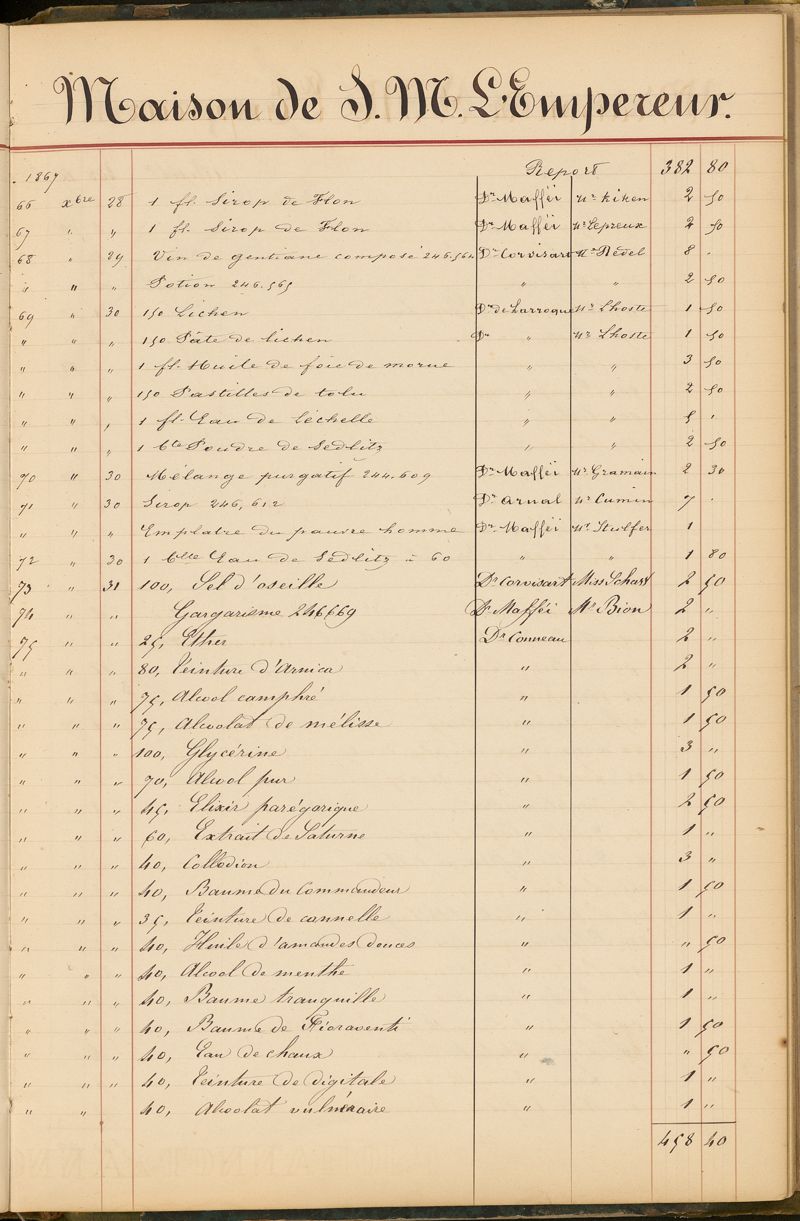 Maison de S. M. L'Empereur.
1867 Report 382 80
66 xbre 28 1 fl. Sirop de Flon Dr Maffëi Mr Kiken 2 50
67 " " 1 fl. Sirop de Flon Dr Maffëi Mr Lepreux 2 50
68 " 29 Vin de gentiane composé 246.564 Dr Corvisart Mr Redel 8 .
" " " Potion 246.565 " " 2 50
69 " 30 150 Lichen Dr de Larroque Mr Lhoste 1 50
" " " 150 Pâte de lichen Dr " Mr Lhoste 1 50
" " " 1 fl. Huile de foie de morue " " 3 50
" " " 150 Pastilles de tolu " " 2 50
" " " 1 fl. Eau de Léchelle " " 5 .
" " " 1 bte Poudre de Sedlitz " " 2 50
70 " 30 Mélange purgatif 244.609 Dr Maffëi Mr Gramain 2 30
71 " 30 Sirop 246,612 Dr Arnal Mr Cumin 7 .
" " " Emplatre du pauvre homme Dr Maffëi Mr Stulfer 1
72 " 30 1 blle Eau de Sedlitz à 60 " " 1 80
73 " 31 100, Sel d'oseille Dr Corvisart Miss Schast 2 50
74 " " Gargarisme 246669 Dr Mafféi Mr Bion 2 "
75 " " 25, Ether Dr Conneau 2 "
" " " 80, Teinture d'Arnica " 2 "
" " " 75, Alcool camphré " 1 50
" " " 75, Alcoolat de mélisse " 1 50
" " " 100, Glycérine " 3 "
" " " 70, Alcool pur " 1 50
" " " 45, Elixir parégorique " 2 50
" " " 60, Extrait de Saturne " 1 "
" " " 40, Collodion " 3 "
" " " 40, Baume du Commandeur " 1 50
" " " 35, Teinture de cannelle " 1 "
" " " 40, Huile d'amandes douces " " 50
" " " 40, Alcool de menthe " 1 "
" " " 40, Baume tranquille " 1 "
" " " 40, Baume de Fioraventi " 1 50
" " " 40, Eau de chaux " " 50
" " " 40, Teinture de digitale " 1 "
" " 40, Alcoolat vulnéraire " 1 "
458 40